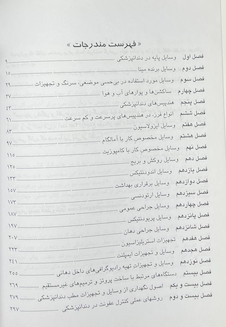 « فهرست مندرجات »
فصل اول وسایل پایه در دندانپزشکی ۹
فصل دوم وسایل برنده مینا
فصل سوم وسایل مورد استفاده در بی‌حسی موضعی، سرنگ و تجهیزات
فصل چهارم ساکشن‌ها و پوارهای آب و هوا ۳۷
فصل پنجم هندپیس‌های دندانپزشکی
فصل ششم انواع فرز، در هندپیس‌های پرسرعت و کم سرعت
فصل هفتم وسایل ایزولاسیون
فصل هشتم وسایل مخصوص کار با آمالگام ۹۷
فصل نهم وسایل مخصوص کار با کامپوزیت ۱۱۵
فصل دهم وسایل روکش و بریج
فصل یازدهم وسایل اندودنتیکس ۱۳۳
فصل دوازدهم وسایل برقراری بهداشت ۱۵۷
فصل سیزدهم وسایل ارتودنسی
فصل چهاردهم وسایل جراحی عمومی ۱۸۷
فصل پانزدهم وسایل پریودنتیکس ۱۹۷
فصل شانزدهم وسایل جراحی دهان ۲۰۷
فصل هفدهم تجهیزات استریلیزاسیون ۲۳۳
فصل هجدهم وسایل و تجهیزات ایمپلنت
فصل نوزدهم وسایل و تجهیزات تهیه رادیوگرافی‌های داخل دهانی ۲۵۵
فصل بیستم دستگاه‌های مرتبط با ساخت پروتز و ترمیم‌های غیرمستقیم ۲۶۹
فصل بیست و یکم اصول نگهداری از وسایل و تجهیزات مطب دندانپزشکی
فصل بیست و دوم روشهای عملی کنترل عفونت در دندانپزشکی ۲۹۷